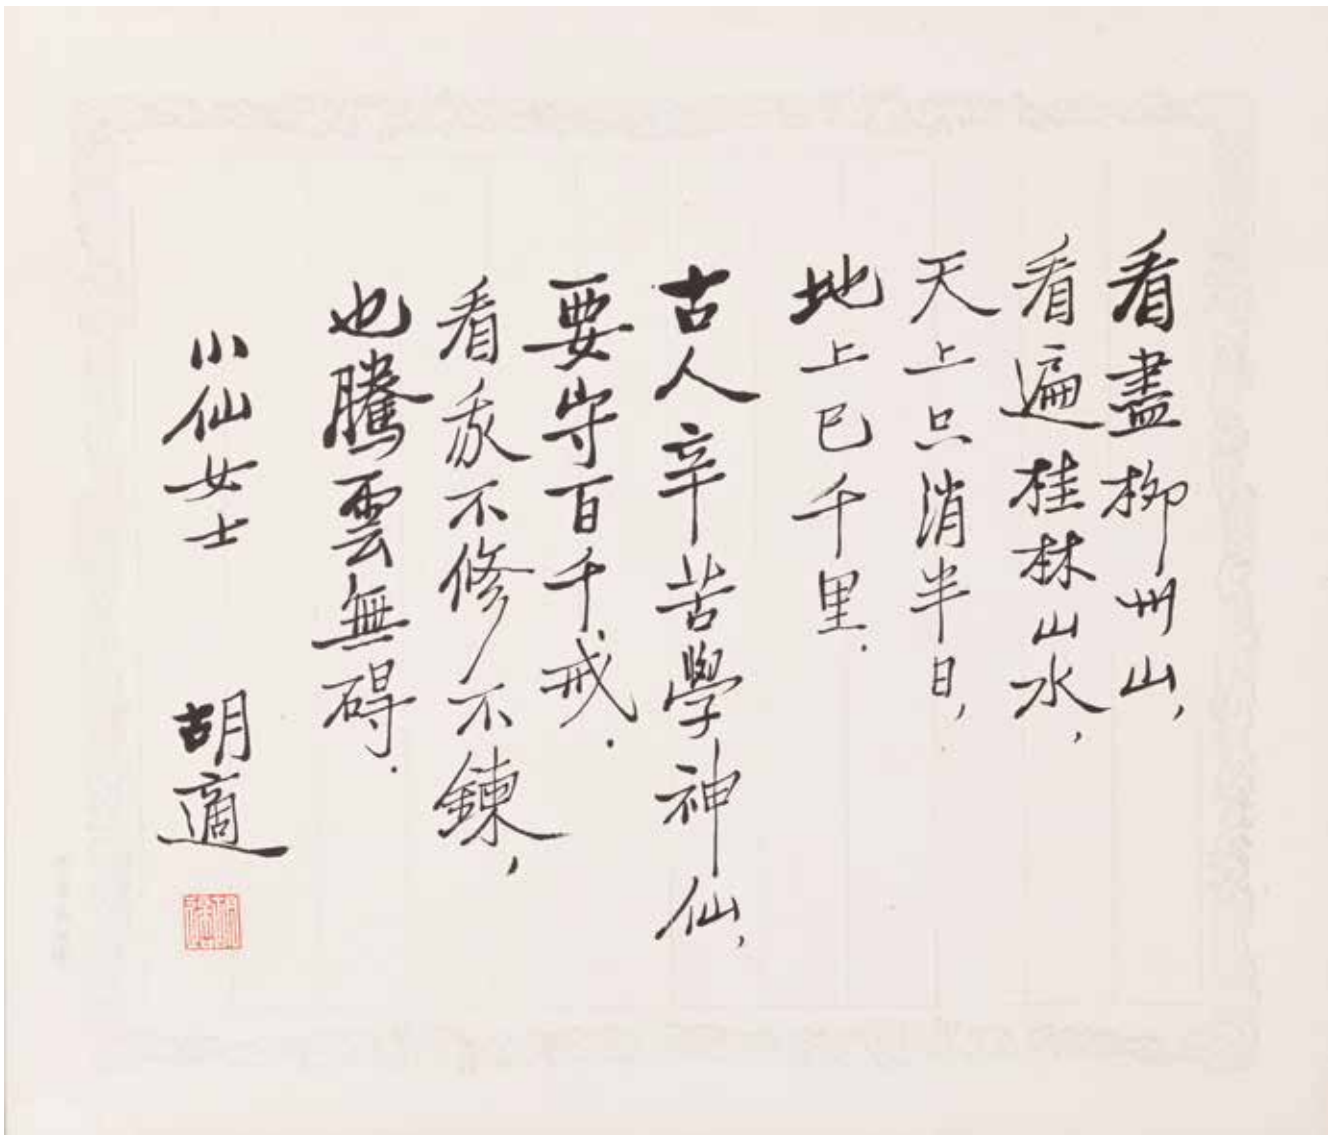 看盡柳州山，
看遍桂林山水，
天上只消半日，
地上已千里．
古人辛苦學神仙，
要守百千戒．
看我不修不鍊，
也騰雲無碍．
小仙女士 胡適